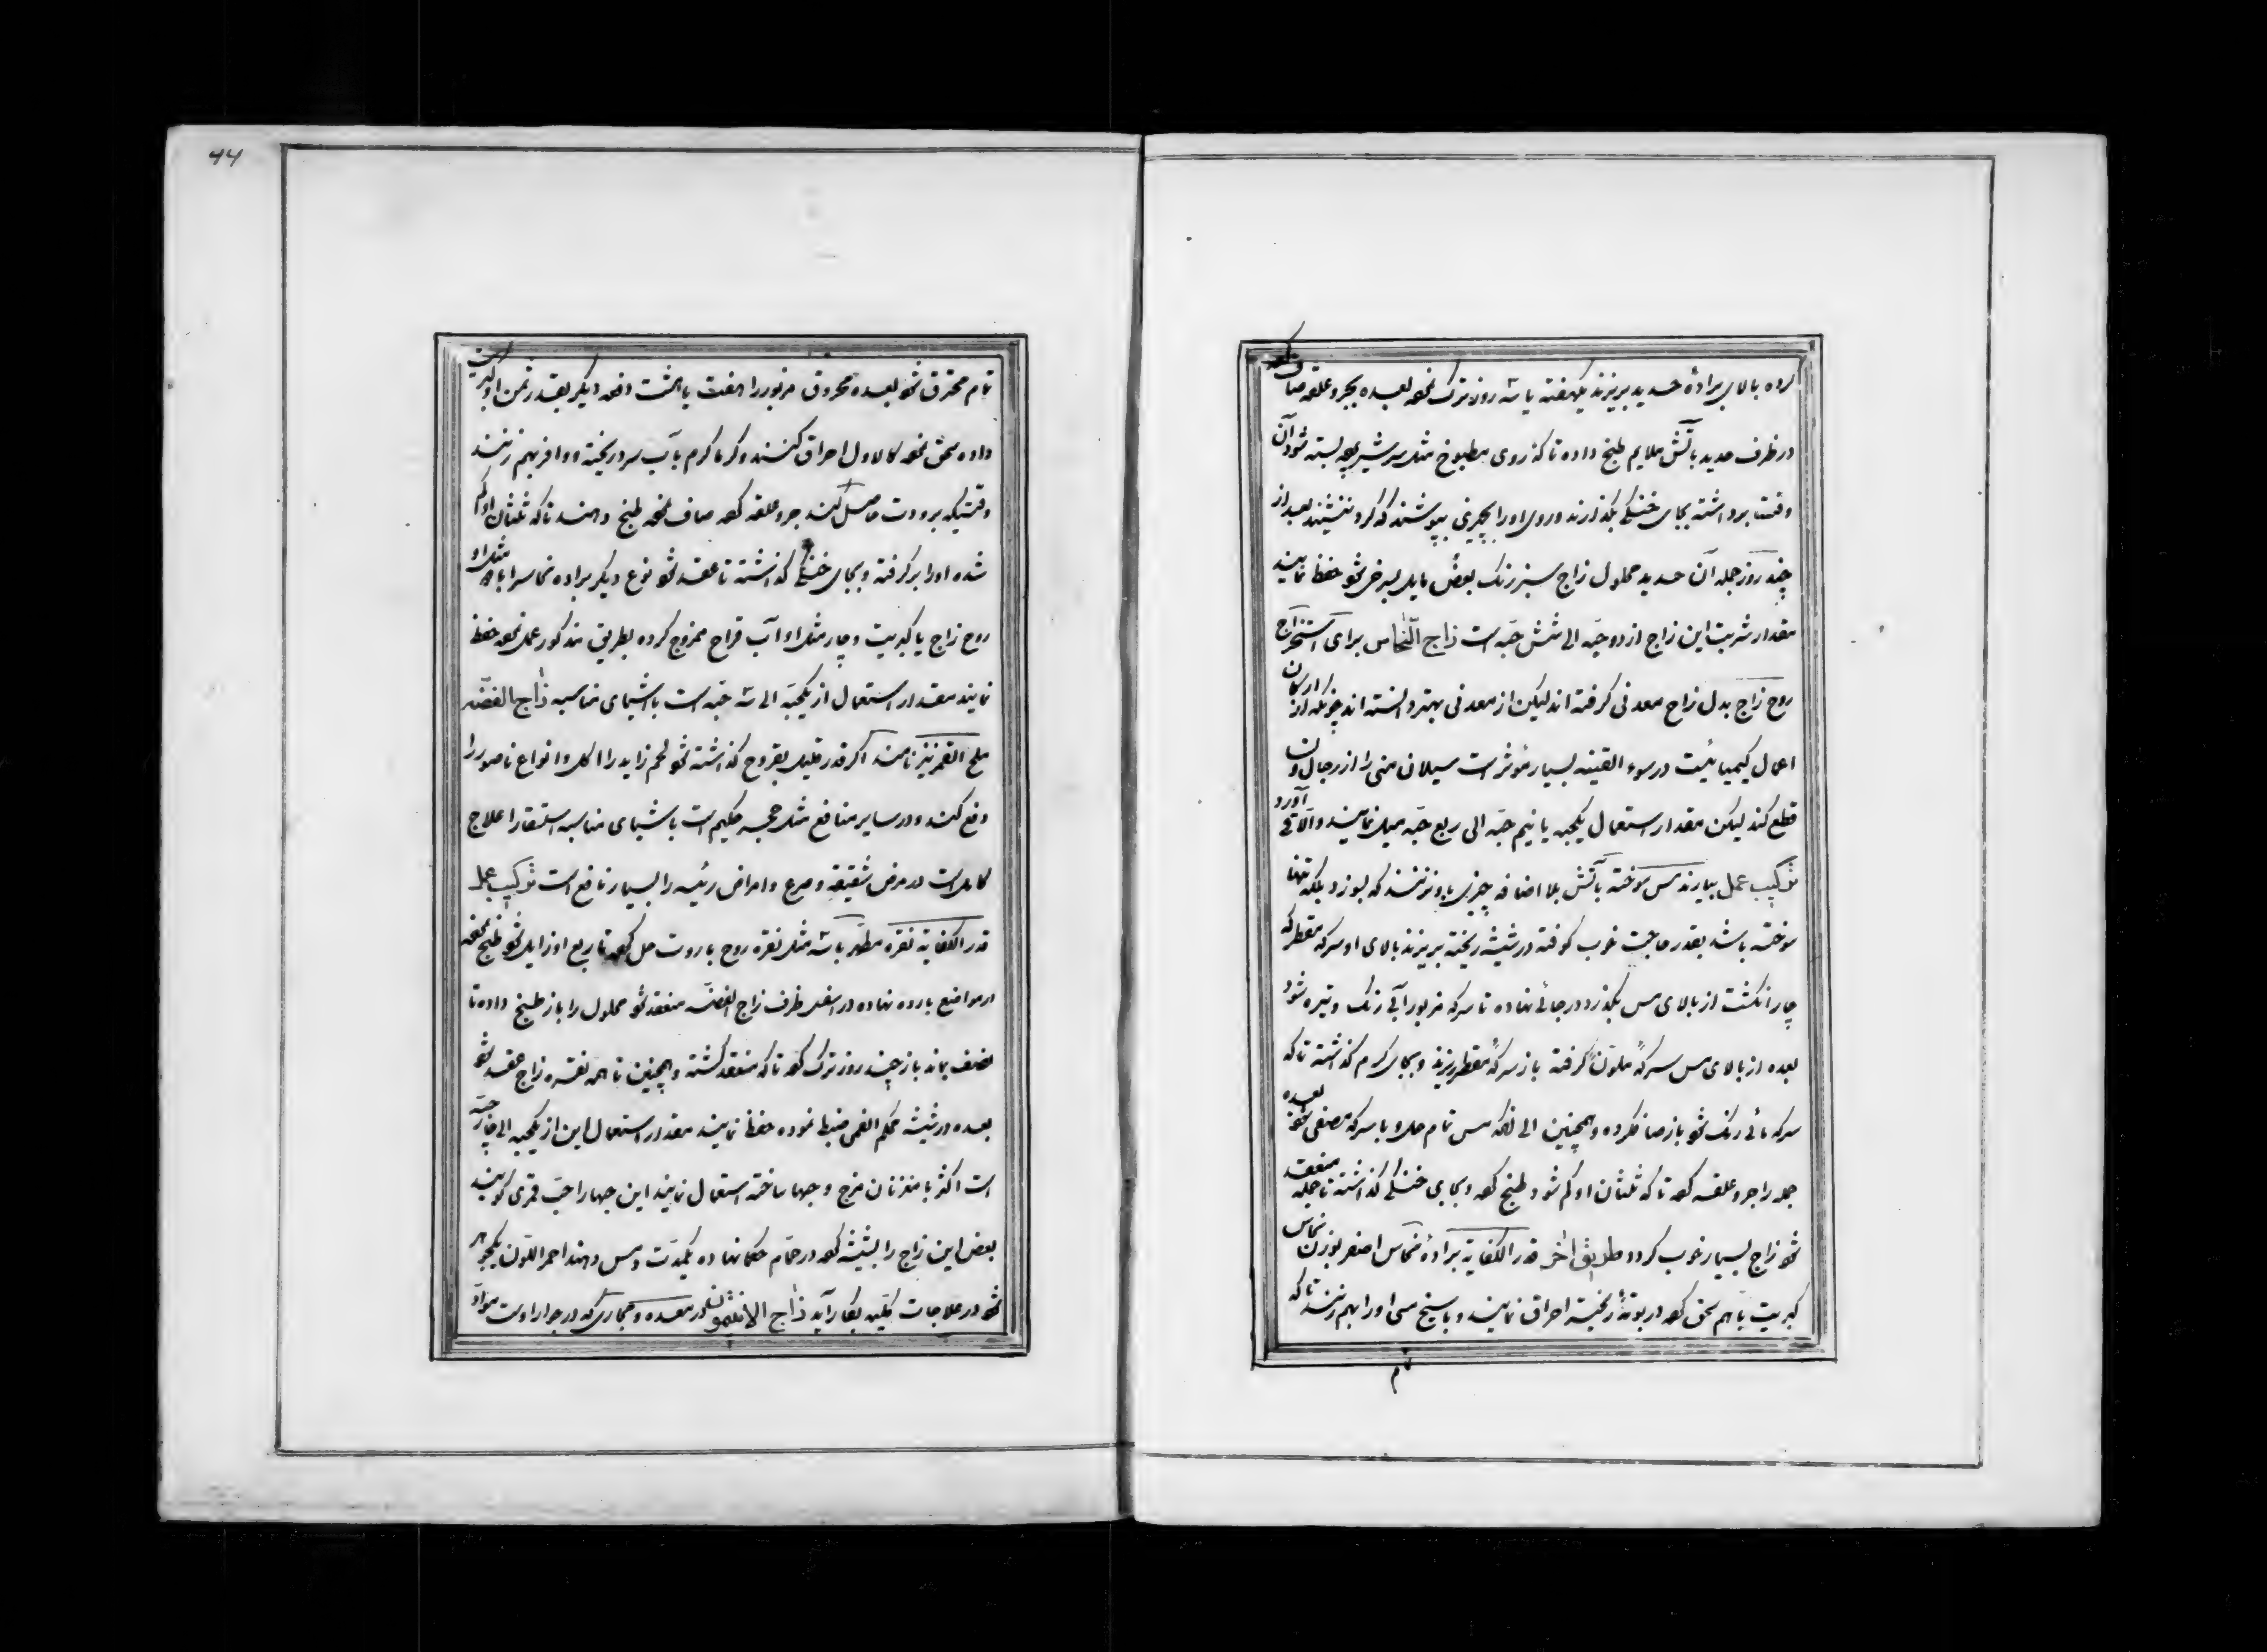 کرده بالای برادهٔ حدید بریزند یکهفته یا سه روز ترک نموده بعده بجر و علقه صاف کرده
در ظرف حدید باتش ملایم طبخ داده تا که روی مطبوخ مثل سرشیر پرده بسته شود آن
وقت برداشته بجای خنکی بگذارند و روی او را بچیزی بپوشند که گرد ننشیند بعد از
چند روز جمله آن حدید محلول زاج سبز رنک بعضی مایل بسرخی شود حفظ نمایند
مقدار شربت این زاج از دو حبّه الی شش حبّه است زاج النّحاس برای استخراج
روح زاج بدل زاج معدنی گرفته اند لیکن از معدنی بهتر دانسته اند چونکه از ارکان
اعمال کیمیائیت در سوء القنیه بسیار موثر است سیلان منی را از رجال و نسوان
قطع کند لیکن مقدار استعمال یکحبه یا نیم حبّه الی ربع حبّه میل نمایند و الا قی آورد
ترکیب عمل بیارند مس سوخته باتش بلا اضافه چیزی باو نزنند که بسوزد بلکه تنها
سوخته باشد بقدر حاجت خوب کوفته در شیشه ریخته بریزند بالای او سرکه مقطر که
چار انکشت از بالای مس بگذرد در جائی نهاده تا سرکه مزبور آبی رنک و تیره شود
بعده از بالای مس سرکهٔ ملوّن گرفته باز سرکهٔ مقطر ریزند و بجای گرم گذاشته تا که
سرکه مائی رنک شود باز صاف کرده و همچنین الی انکه مس تمام حل و با سرکه مصفی شود بعده
جمله را جر و علقه کرده تا که ثلثان او کم شود طبخ کرده و بجای خنکی گذاشته تا جمله منعقد
شود زاج بسیار خوب گردد طریق اخر قدر الکفایة برادهٔ نحاس اصفر بوزن نحاس
کبریت باهم سحق کرده در بوتهٔ ریخته احراق نمایند و با سیخ مس او را بهم زنند تا که
تمام
44
تمام محترق شود بعده محروق مزبور را هفت یا هشت دفعه دیگر بقدر ثمن او کبریت
داده سحق نموده کالاول احراق کنند و گرما گرم باب سرد ریخته و وافر بهم زنند
وقتیکه برودت حاصل کند جر و علقه کرده صاف نموده طبخ دهند تا که ثلثان او کم
شده او را بر گرفته و بجای خنکی گذاشته تا عقد شود نوع دیگر براده نحاس را با مثل او
روح زاج یا کبریت و چار مثل او آب قراح ممزوج کرده بطریق مذکور عمل نموده حفظ
نمایند مقدار استعمال از یکحبّه الی سه حبّه است باشیای مناسبه زاج الفضّه
ملح القمر نیز نامند اگر قدر قلیل بقروح گذاشته شود لحم زاید را اکل و انواع ناصور را
دفع کند و در سایر منافع مثل حجر حکیم است باشیای مناسبه استسقا را علاج
کامل است در مرض شقیقه و صرع و امراض رئیسه را بسیار نافع است ترکیب عمل
قدر الکفایة نقره مطهّر باشد مثل نقره روح باروت حل کرده تا ربع او زایل شود طبخ نموده
در مواضع بارده نهاده در اسفل ظرف زاج الفضّه منعقد شود محلول را باز طبخ داده تا
نصف بماند باز چند روز ترک کرده تا که منعقد گشته و همچنین تا همه نقره زاج عقد شود
بعده در شیشه محکم الفم ضبط نموده حفظ نمایند مقدار استعمال این از یکحبه الی چار حبّه
است اکثر با مغز نان مزج و حبها ساخته استعمال نمایند این حبها را حبّ قمری گویند
بعض این زاج را بشیشه کرده در حمّام حکما نهاده یکمدّت و مس دهند احمر اللّون یکجوهر
شود در علاجات کلّیه بکار آید زاج الانتیمون در معده و مجاری که در جوار اوست مواد